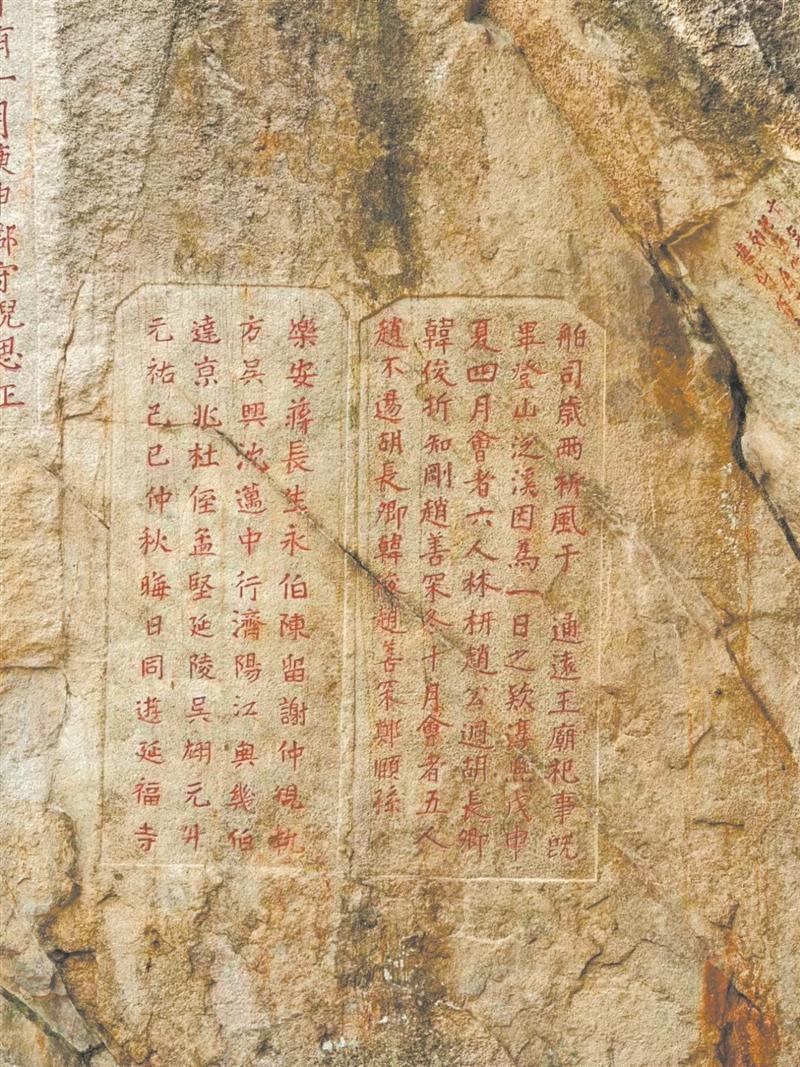 舶司歲兩祈風于 通遠王廟祀事既
畢登山泛溪因為一日之欵淳熙戊申
夏四月會者六人林枅趙公逈胡長卿
韓俊折知剛趙善寀冬十月會者五人
趙不逷胡長卿韓俊趙善寀鄭頤孫
樂安蔣長生永伯陳留謝仲規執
方吳興沈邁中行濟陽江與幾伯
達京兆杜侄孟堅延陵吳翃元升
元祐己巳仲秋晦日同遊延福寺
有一月庚申郡守倪思正